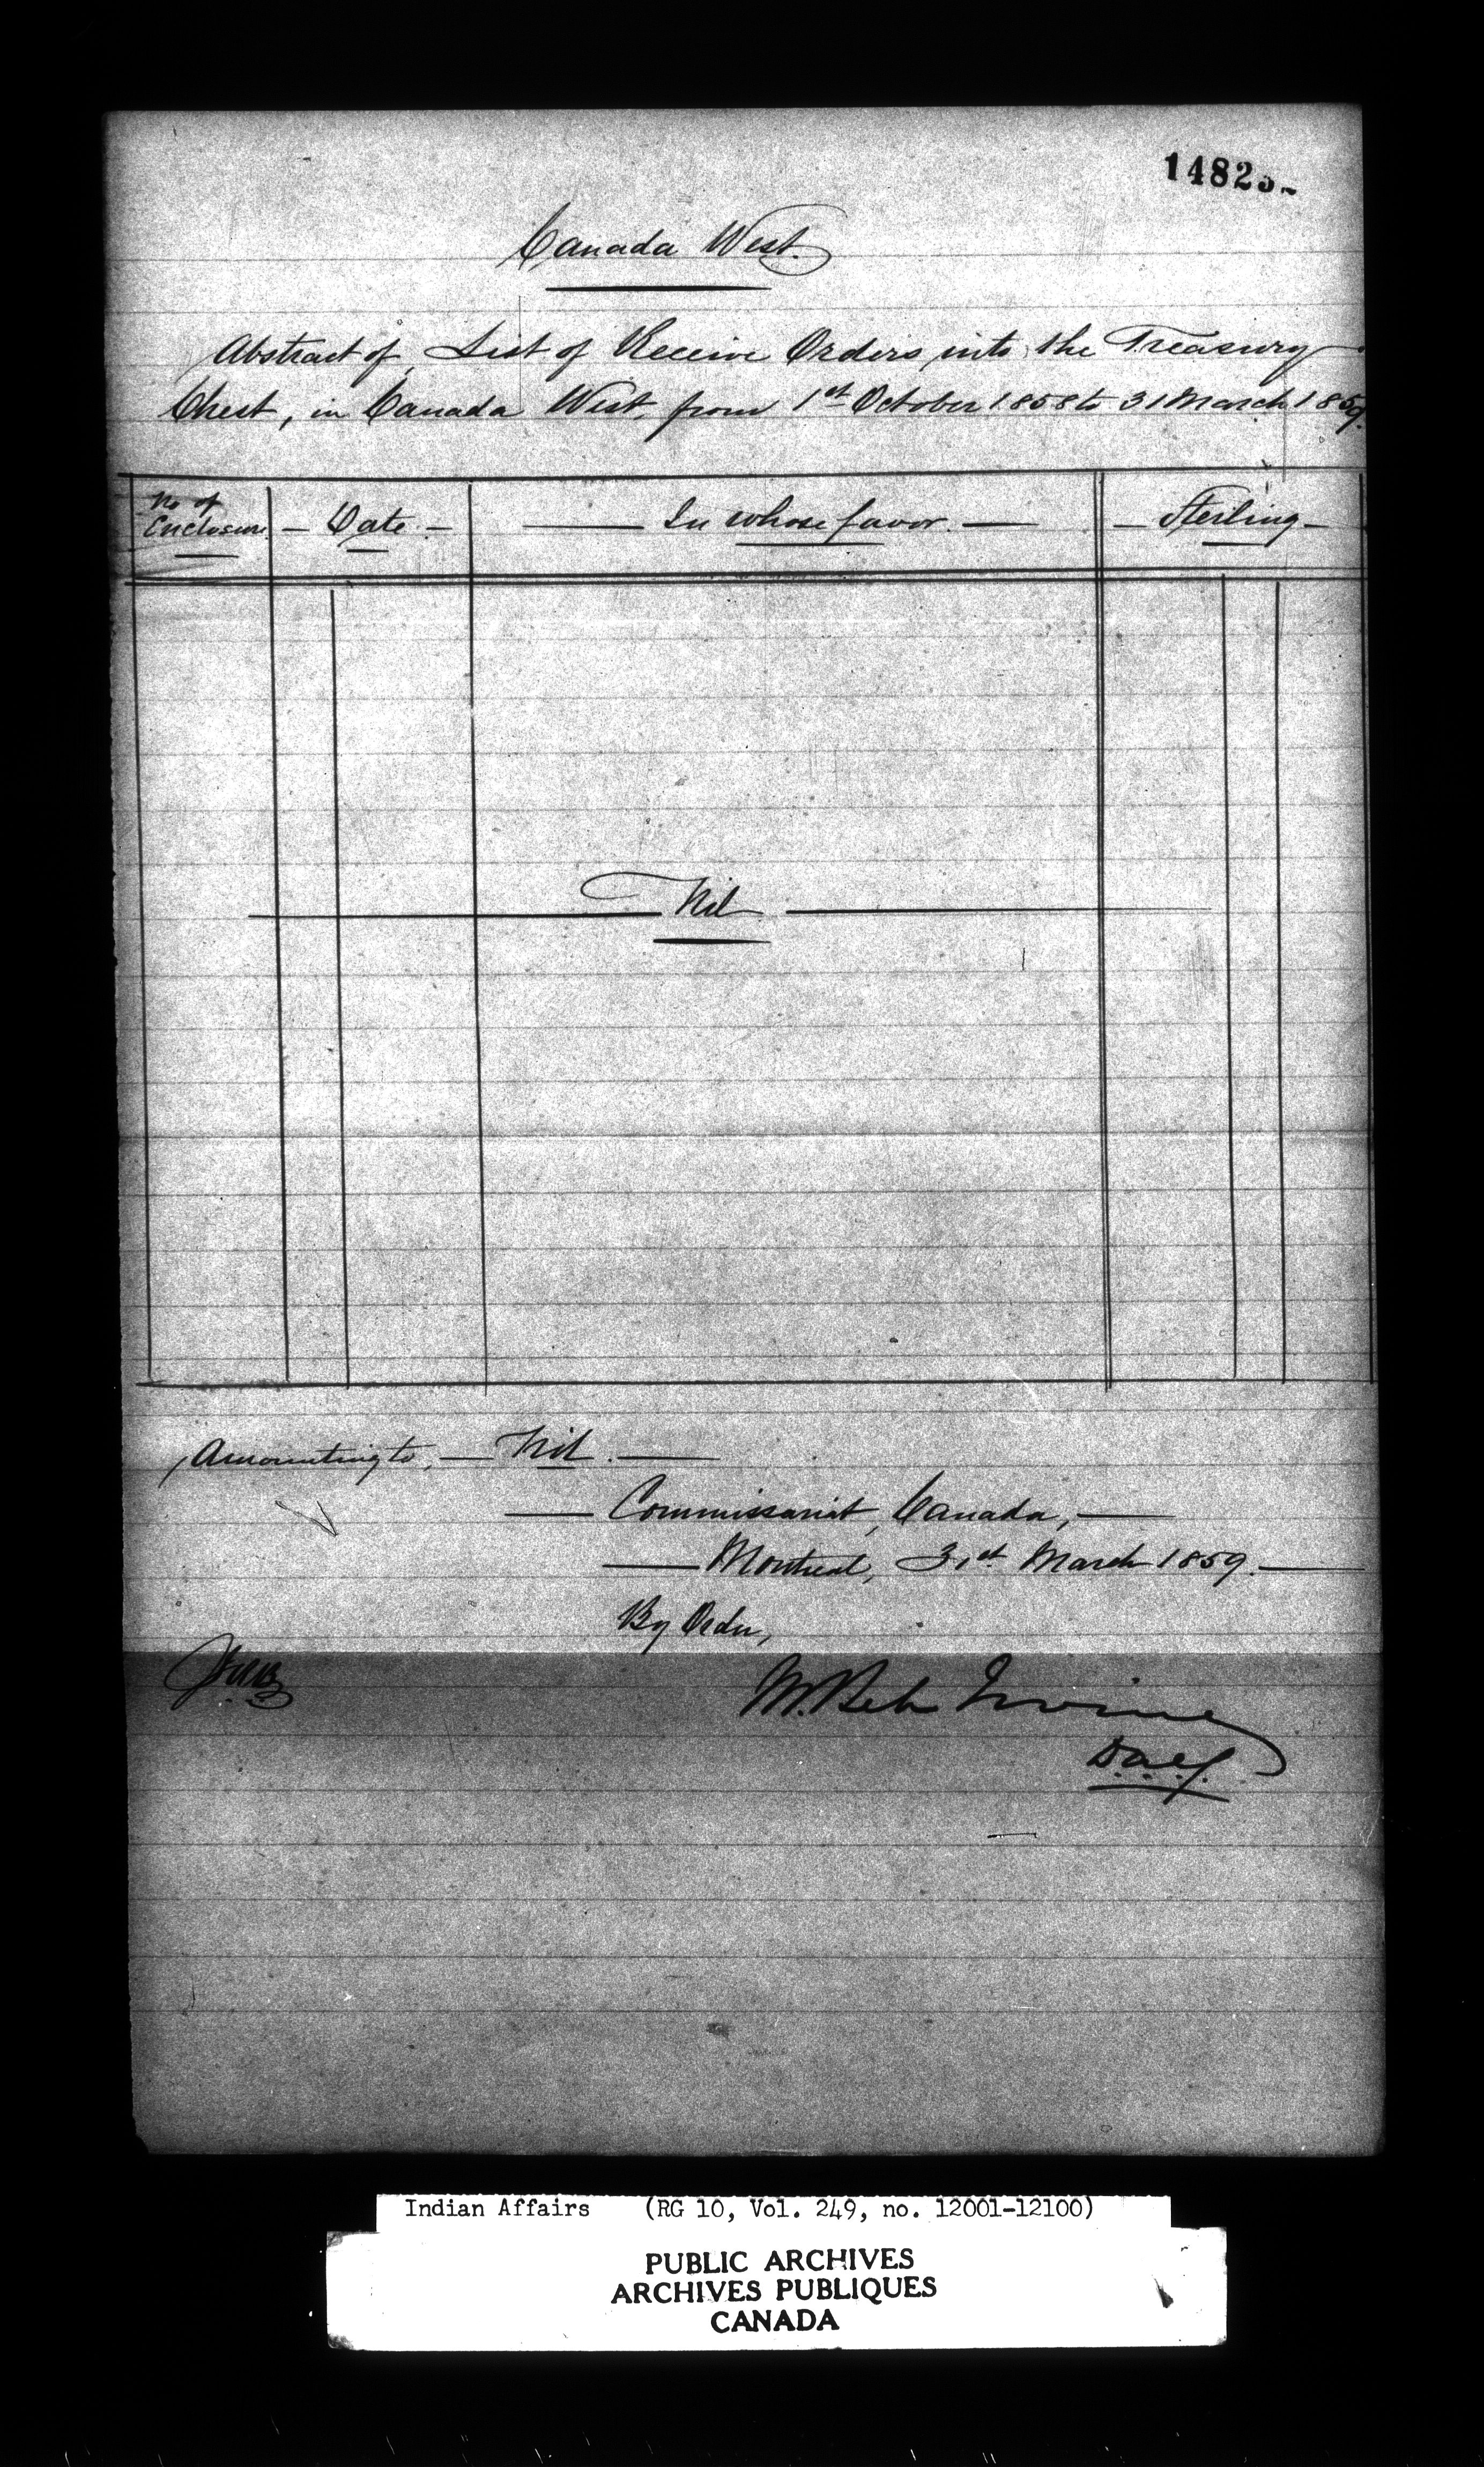 14823
Canada West.
Abstract of List of Receive Orders into the Treasury
Chest, in Canada West, from 1st October 1858 to 31 March 1859.
No of Enclosure
Date
In whose favor
Sterling
Nil
Amounting to, Nil.
Commissariat, Canada,
Montreal, 31st March 1859.
By Order,
Irvine
Indian Affairs (RG 10, Vol. 249, no. 12001-12100)
PUBLIC ARCHIVES
ARCHIVES PUBLIQUES
CANADA